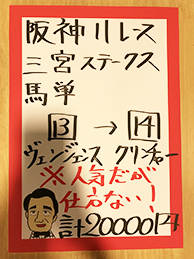 阪神11レース
三宮ステークス
馬単
13→14
ヴェンジェンス クリンチャー
※人気だが
仕方ない!
計20000円